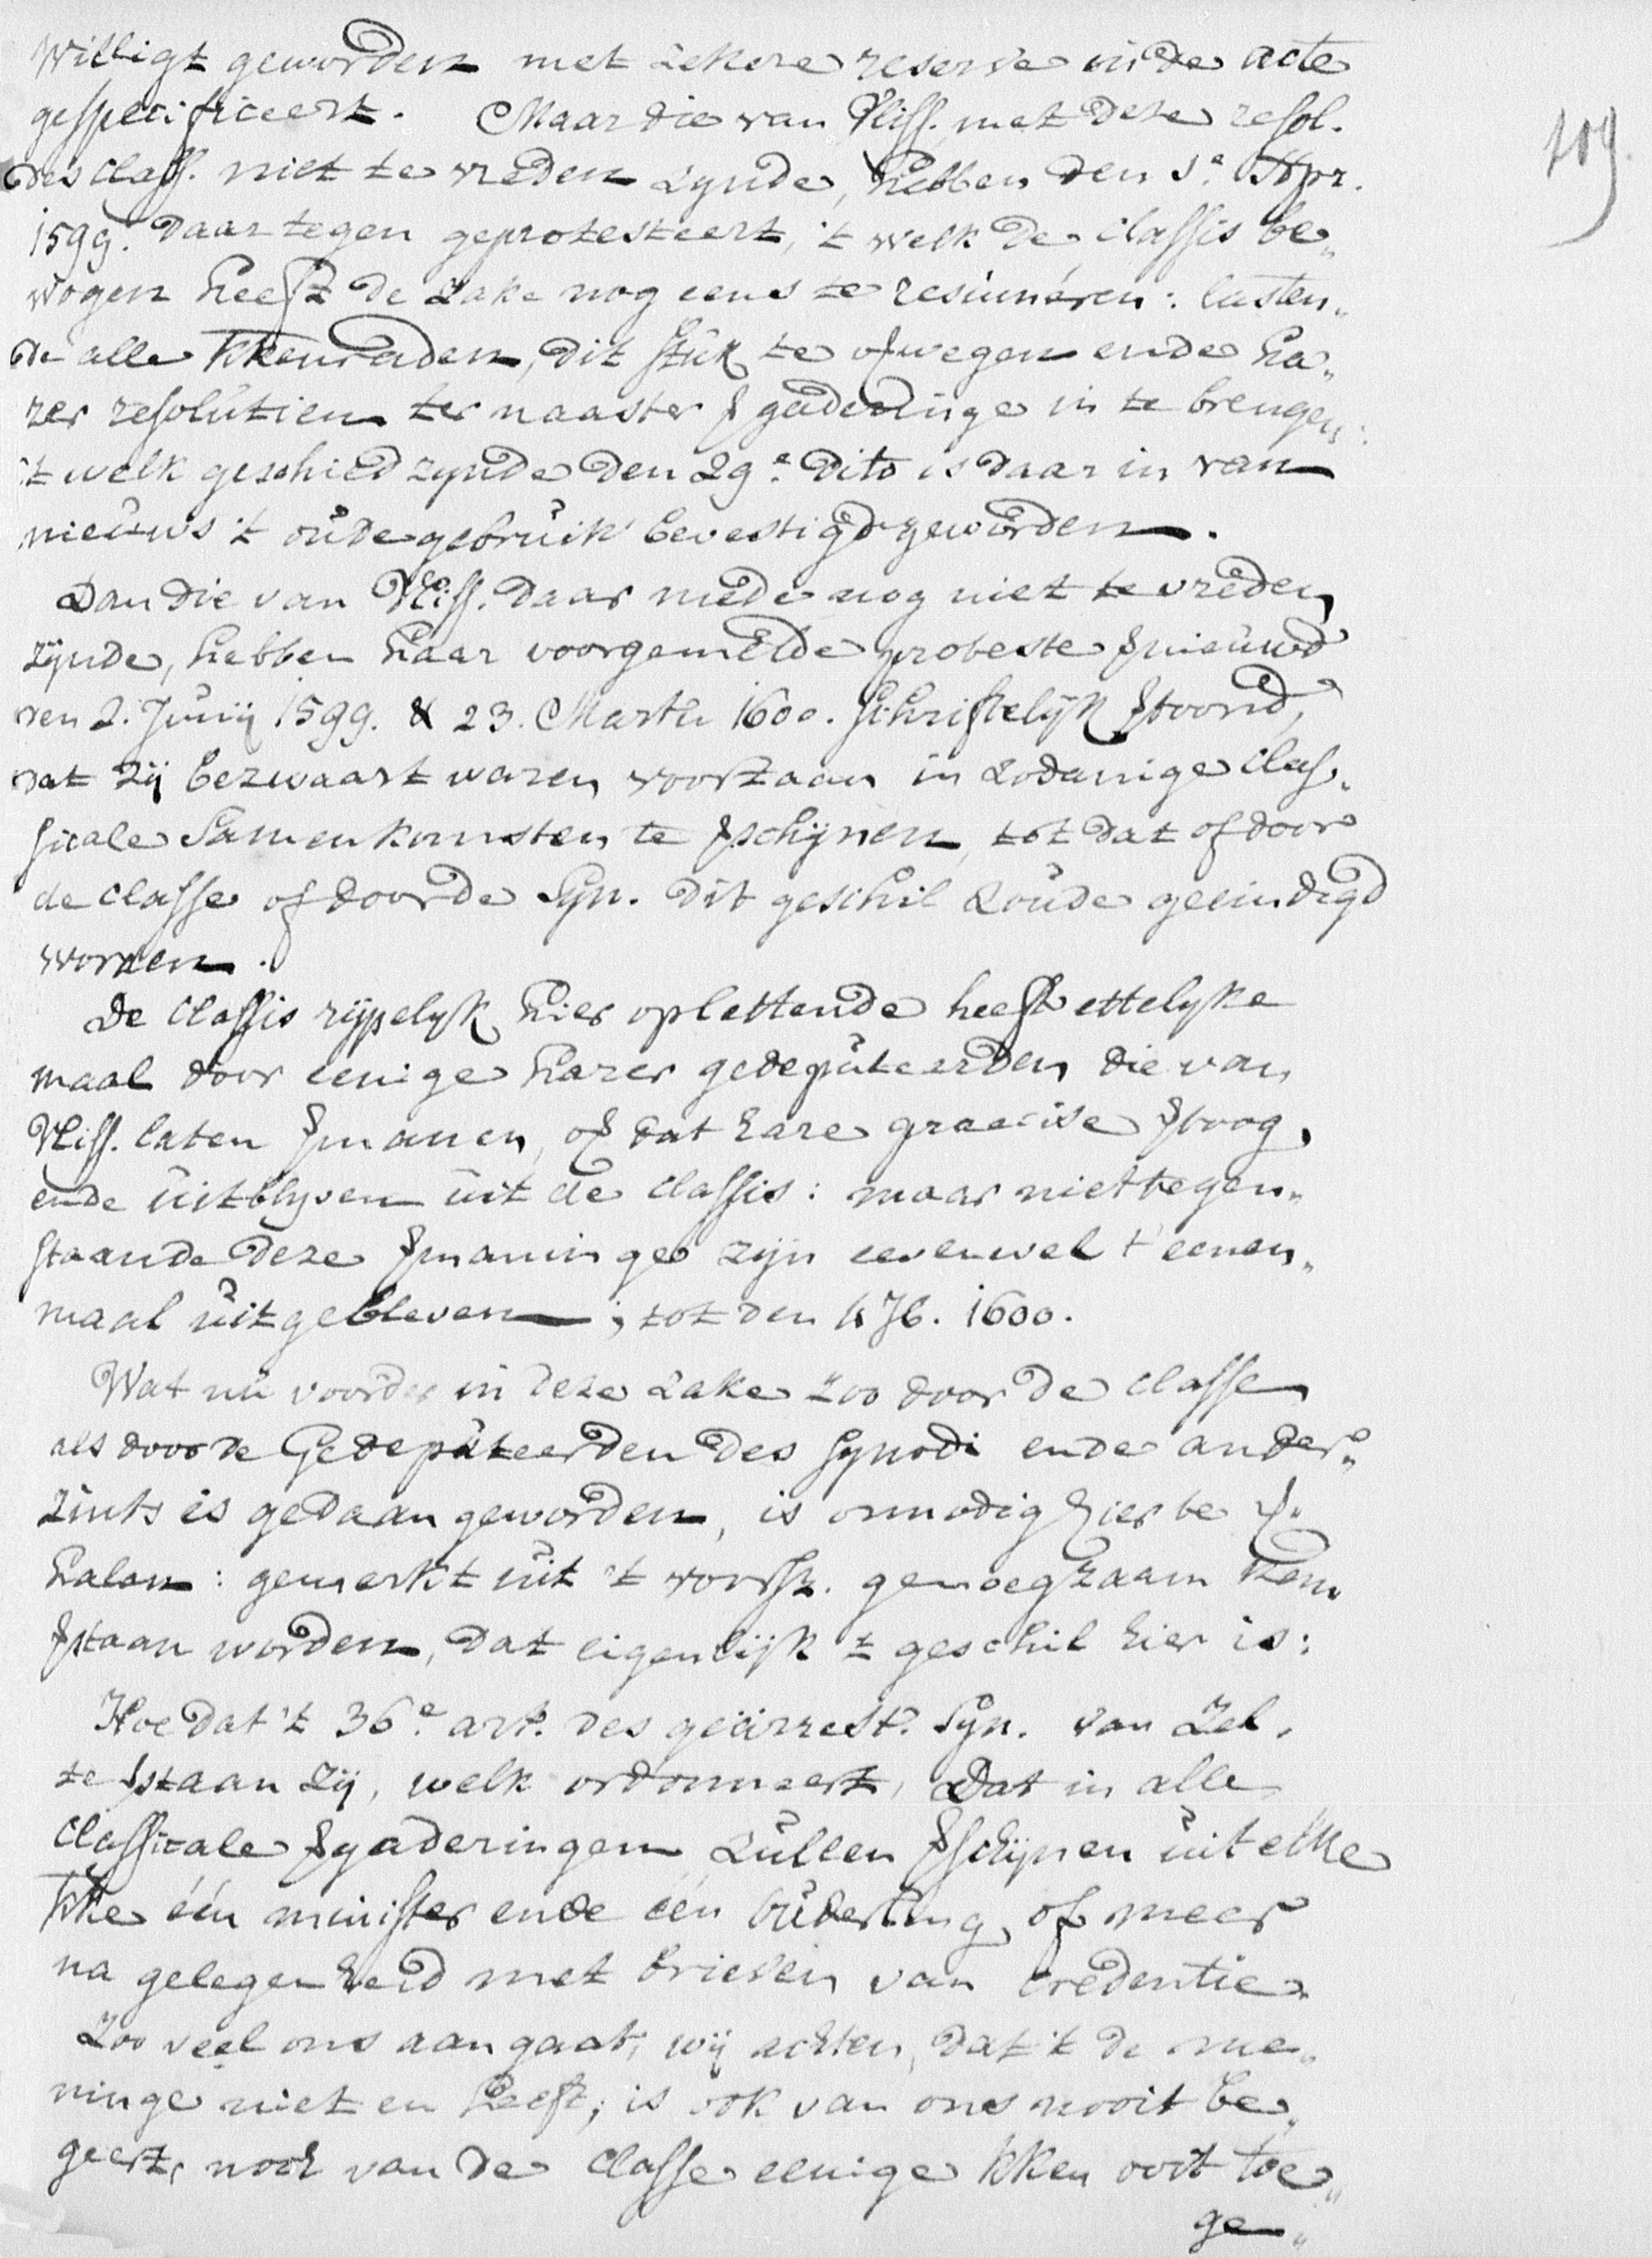 willigt geworden met zekere reserve in de acte
gespecificeert. Maar die van Vliss. met deze resol.
des class. niet te vreden zynde, hebben den 1.e Apr.
1599. daar tegen geprotesteert, 't welk de classis be„
wogen heeft de zake nog eens te resumeren: lasten„
de alle kkenraden, dit stuk te overwegen ende ha„
rer resolutien ter naaster vergaderinge in te brengen:
't welk geschied zynde den 29.e dito is daar in van
nieuws 't oude gebruik bevestigd geworden.
Dan die van Vliss. daar mede nog niet te vreden
zijnde, hebben haar voorgemelde proteste vernieuwd
den 2. Junij 1599. & 23. Martii 1600. schriftelijk vertoond,
dat zij bezwaart waren voortaan in zodanige clas„
sicale samenkomsten te verschijnen, tot dat of door
de classe of door de Syn. dit geschil zoude geeindigd
worden.
De classis rijpelyk hier oplettende heeft ettelyke
maal door eenige harer gedeputeerden die van
Vliss. laten vermanen, of dat hare gracie vertoog,
ende uitblyven uit de classis: maar niettegen„
staande deze vermaninge zijn eevenwel t'eenen„
maal uitgebleven; tot den 4 7b. 1600.
Wat nu voorder in deze zake zoo door de classe
als door de Gedeputeerden des Synodi ende ander„
zints is gedaan geworden, is onnodig hier te ver„
halen: gemerkt uit 't voorsz. genoegzaam kan
verstaan worden, dat eigenlijk 't geschil hier is:
Hoe dat 't 36.e art. des geärrest. Syn. van Zel.
te verstaan zij, welk ordonneert, Dat in alle
classicale vergaderingen zullen verschijnen uit elke
kke één minister ende één ouderling, of meer
na gelegenheid met brieven van credentie.
Zoo veel ons aangaat, wij achten, dat 't de me„
ninge niet en heeft; is ook van ons nooit be„
geert, noch van de classe eenige kken ooit toe„
ge„
109.